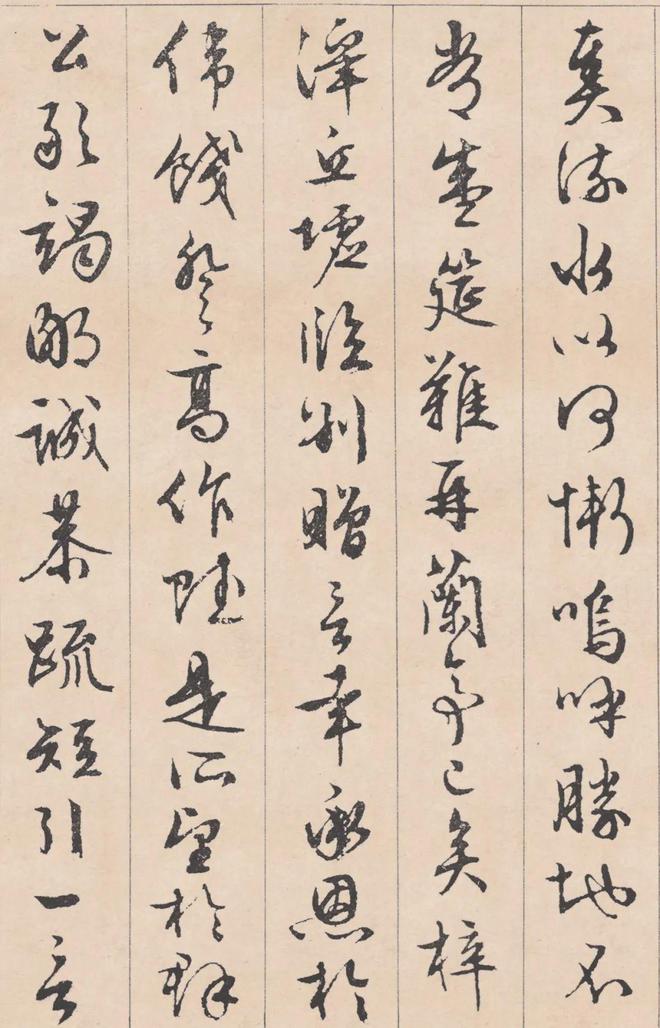 奏流水以何慚嗚呼勝地不
常盛筵難再蘭亭已矣梓
澤丘墟臨別贈言幸承恩於
偉餞登高作賦是所望於群
公敢竭鄙誠恭疏短引一言